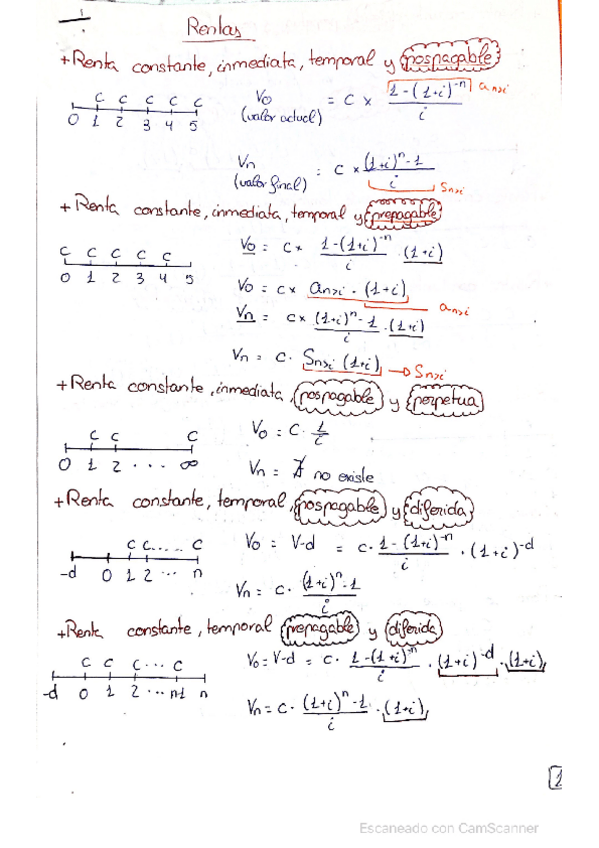 Rentas
+ Renta constante, inmediata, temporal y pospagable
C C C C C
0 1 2 3 4 5
V0 = C × 1-(1+i)^-n / i an¬i
(valor actual)
Vn = C × (1+i)^n-1 / i Sn¬i
(valor final)
+ Renta constante, inmediata, temporal y prepagable
C C C C C
0 1 2 3 4 5
V0 = C × 1-(1+i)^-n / i · (1+i)
V0 = C × an¬i · (1+i) än¬i
Vn = C × (1+i)^n-1 / i · (1+i)
Vn = C · Sn¬i (1+i) → S̈n¬i
+ Renta constante, inmediata, pospagable y perpetua
C C C
0 1 2 ... ∞
V0 = C · 1/i
Vn = ∄ no existe
+ Renta constante, temporal, pospagable y diferida
C C..... C
-d 0 1 2 ... n
V0 = V-d = C · 1-(1+i)^-n / i · (1+i)^-d
Vn = C · (1+i)^n-1 / i
+ Renta constante, temporal prepagable y diferida
C C C ... C
-d 0 1 2 ... n-1 n
V0 = V-d = C · 1-(1+i)^-n / i · (1+i)^-d · (1+i)
Vn = C · (1+i)^n-1 / i · (1+i)
1
Escaneado con CamScanner